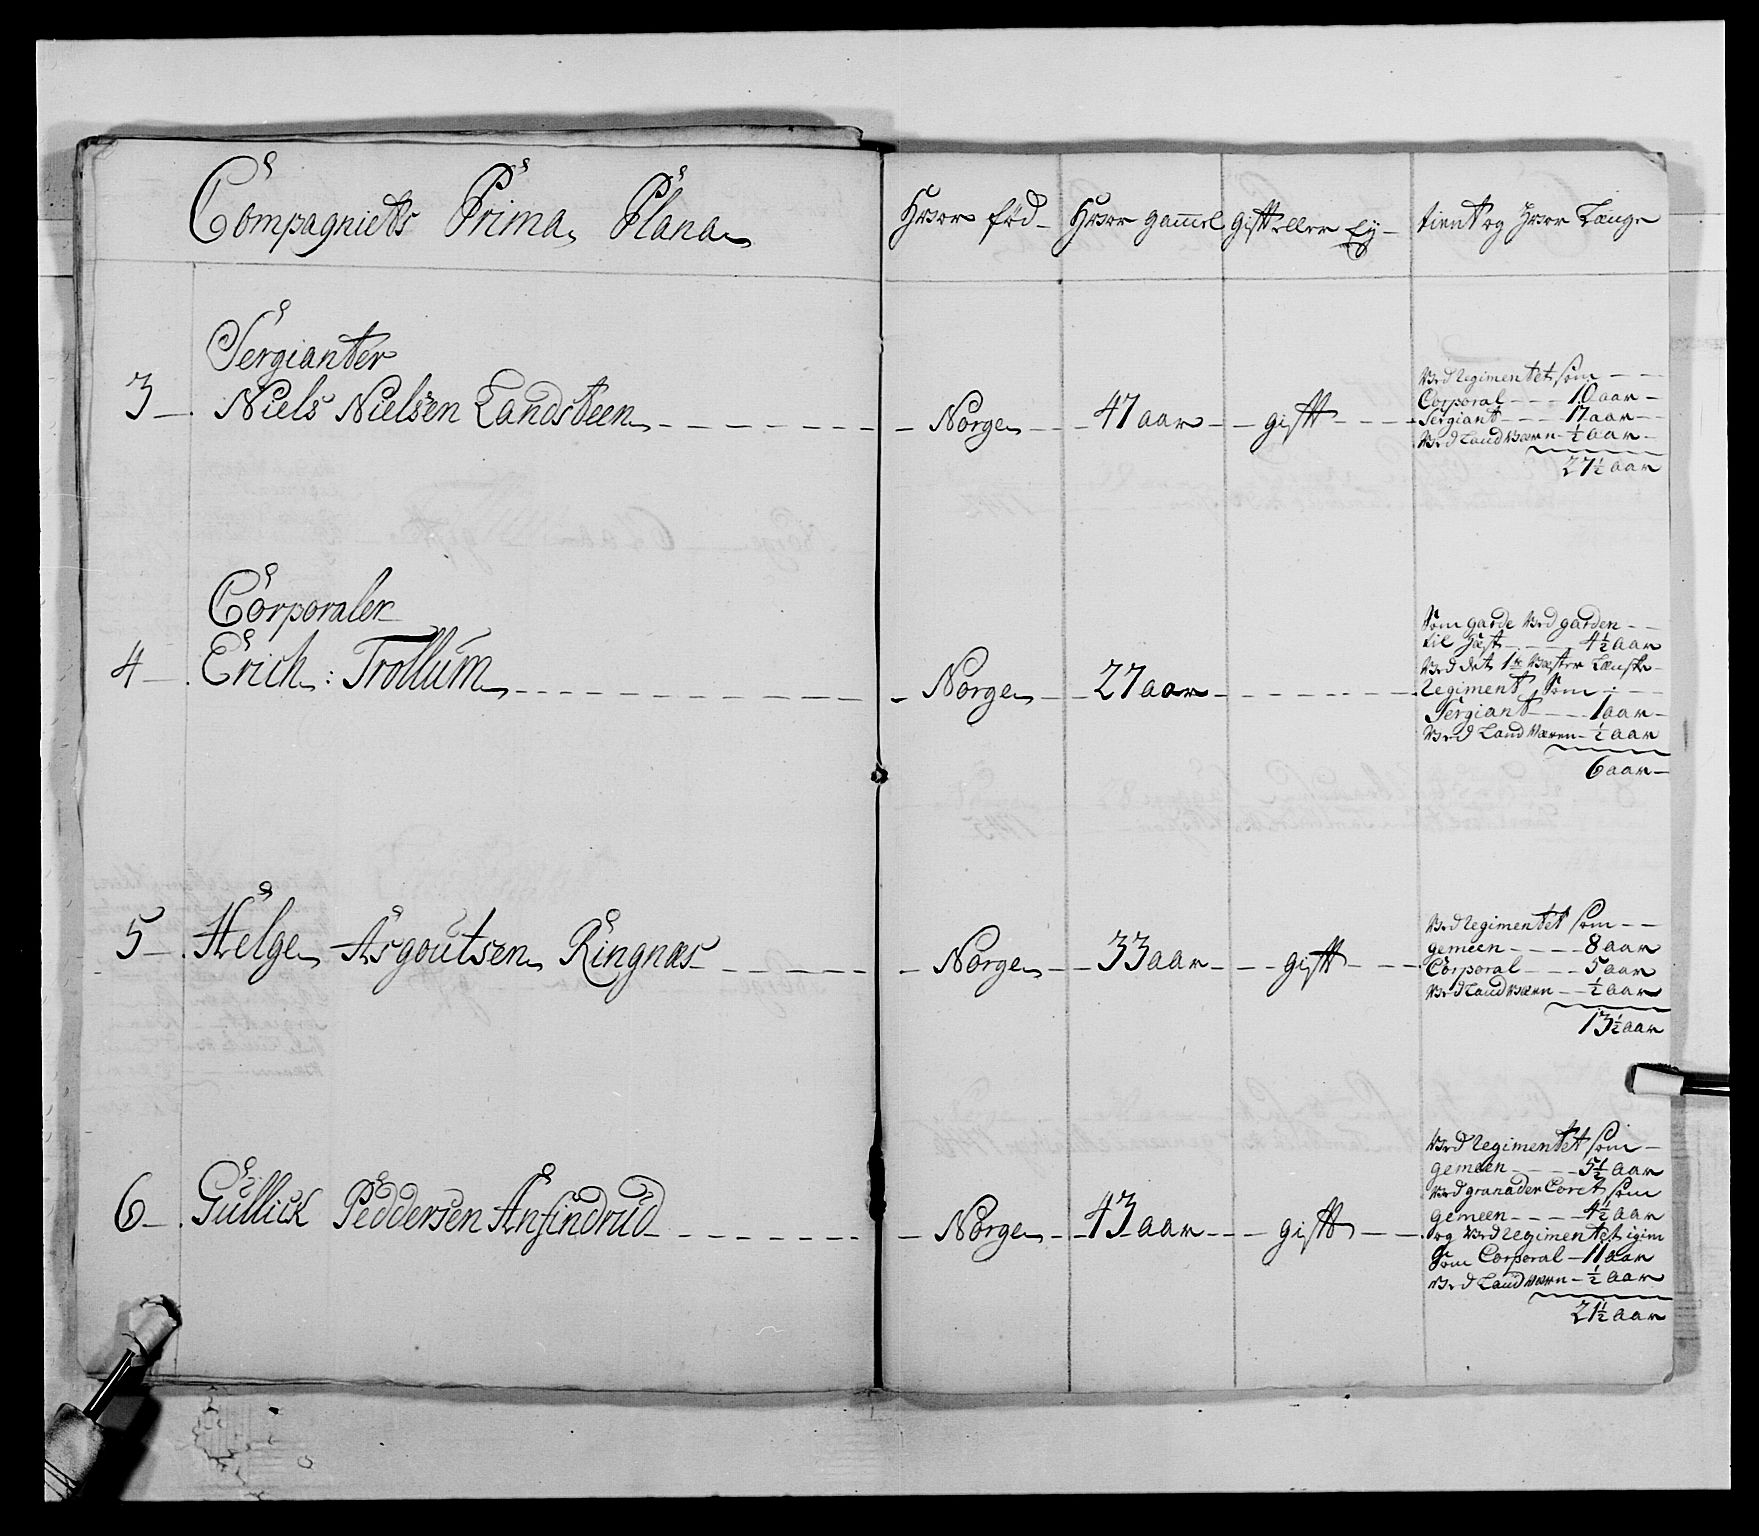 Compagniets Prima Plana
Hvor fød
Hvor gammel
Gift eller Ey
tient og Hvor Længe
Sergianter
3 Niels Nielsen Landsteen
Norge
47 aar
gift
Ved Regimentet som
Corporal 10 aar
Sergiant 17 aar
Ved Landværn ½ aar
27½ aar
Corporaler
4 Erich: Trollum
Norge
27 aar
Som garde Ved garden
til Hæst 4½ aar
Ved det 1te Vester Lenske
Regiment Som
Sergiant 1 aar
Ved Land Væren ½ aar
6 aar
5 Helge Asgoutsen Ringnæs
Norge
33 aar
gift
Ved Regimentet som
gemeen 8 aar
Corporal 5 aar
Ved Landværn ½ aar
13½ aar
6 Gullick Peddersen Ansindrud
Norge
43 aar
gift
Ved Regimentet som
gemeen 5½ aar
Ved granader Coret som
gemeen 4½ aar
og Ved Regimentet igien
som Corporal 11 aar
Ved Landværn ½ aar
21½ aar